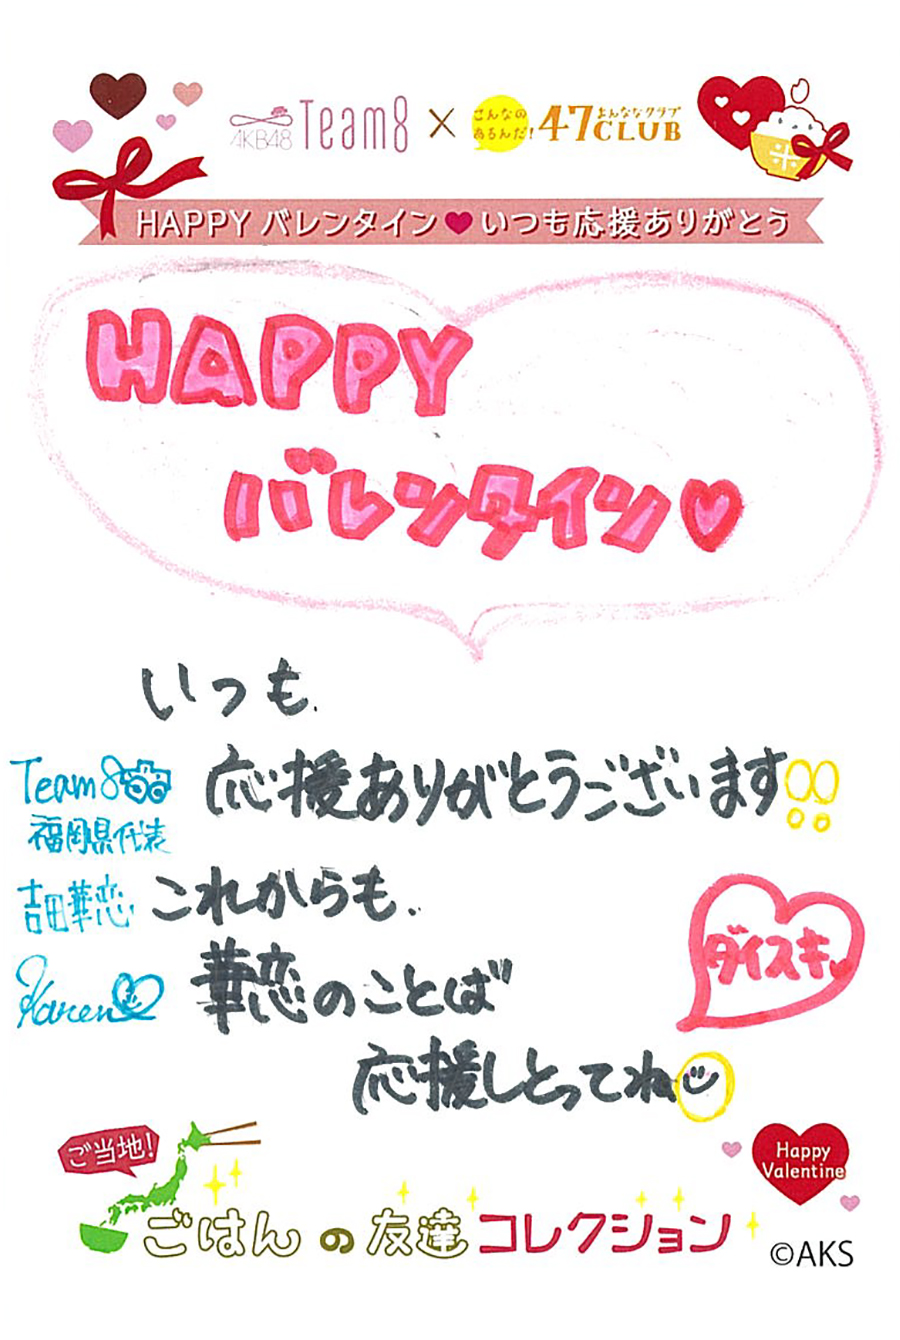 AKB48 Team8 × こんなの あるんだ! 47CLUB よんななクラブ
HAPPY バレンタイン♥いつも応援ありがとう
HAPPY
バレンタイン♡
いつも.
Team8
福岡県代表
応援ありがとうございます!!
吉田華恋
これからも.
Karen
華恋のことば
応援しとってね
ダイスキ
ご当地!
ごはんの友達コレクション
Happy
Valentine
©AKS